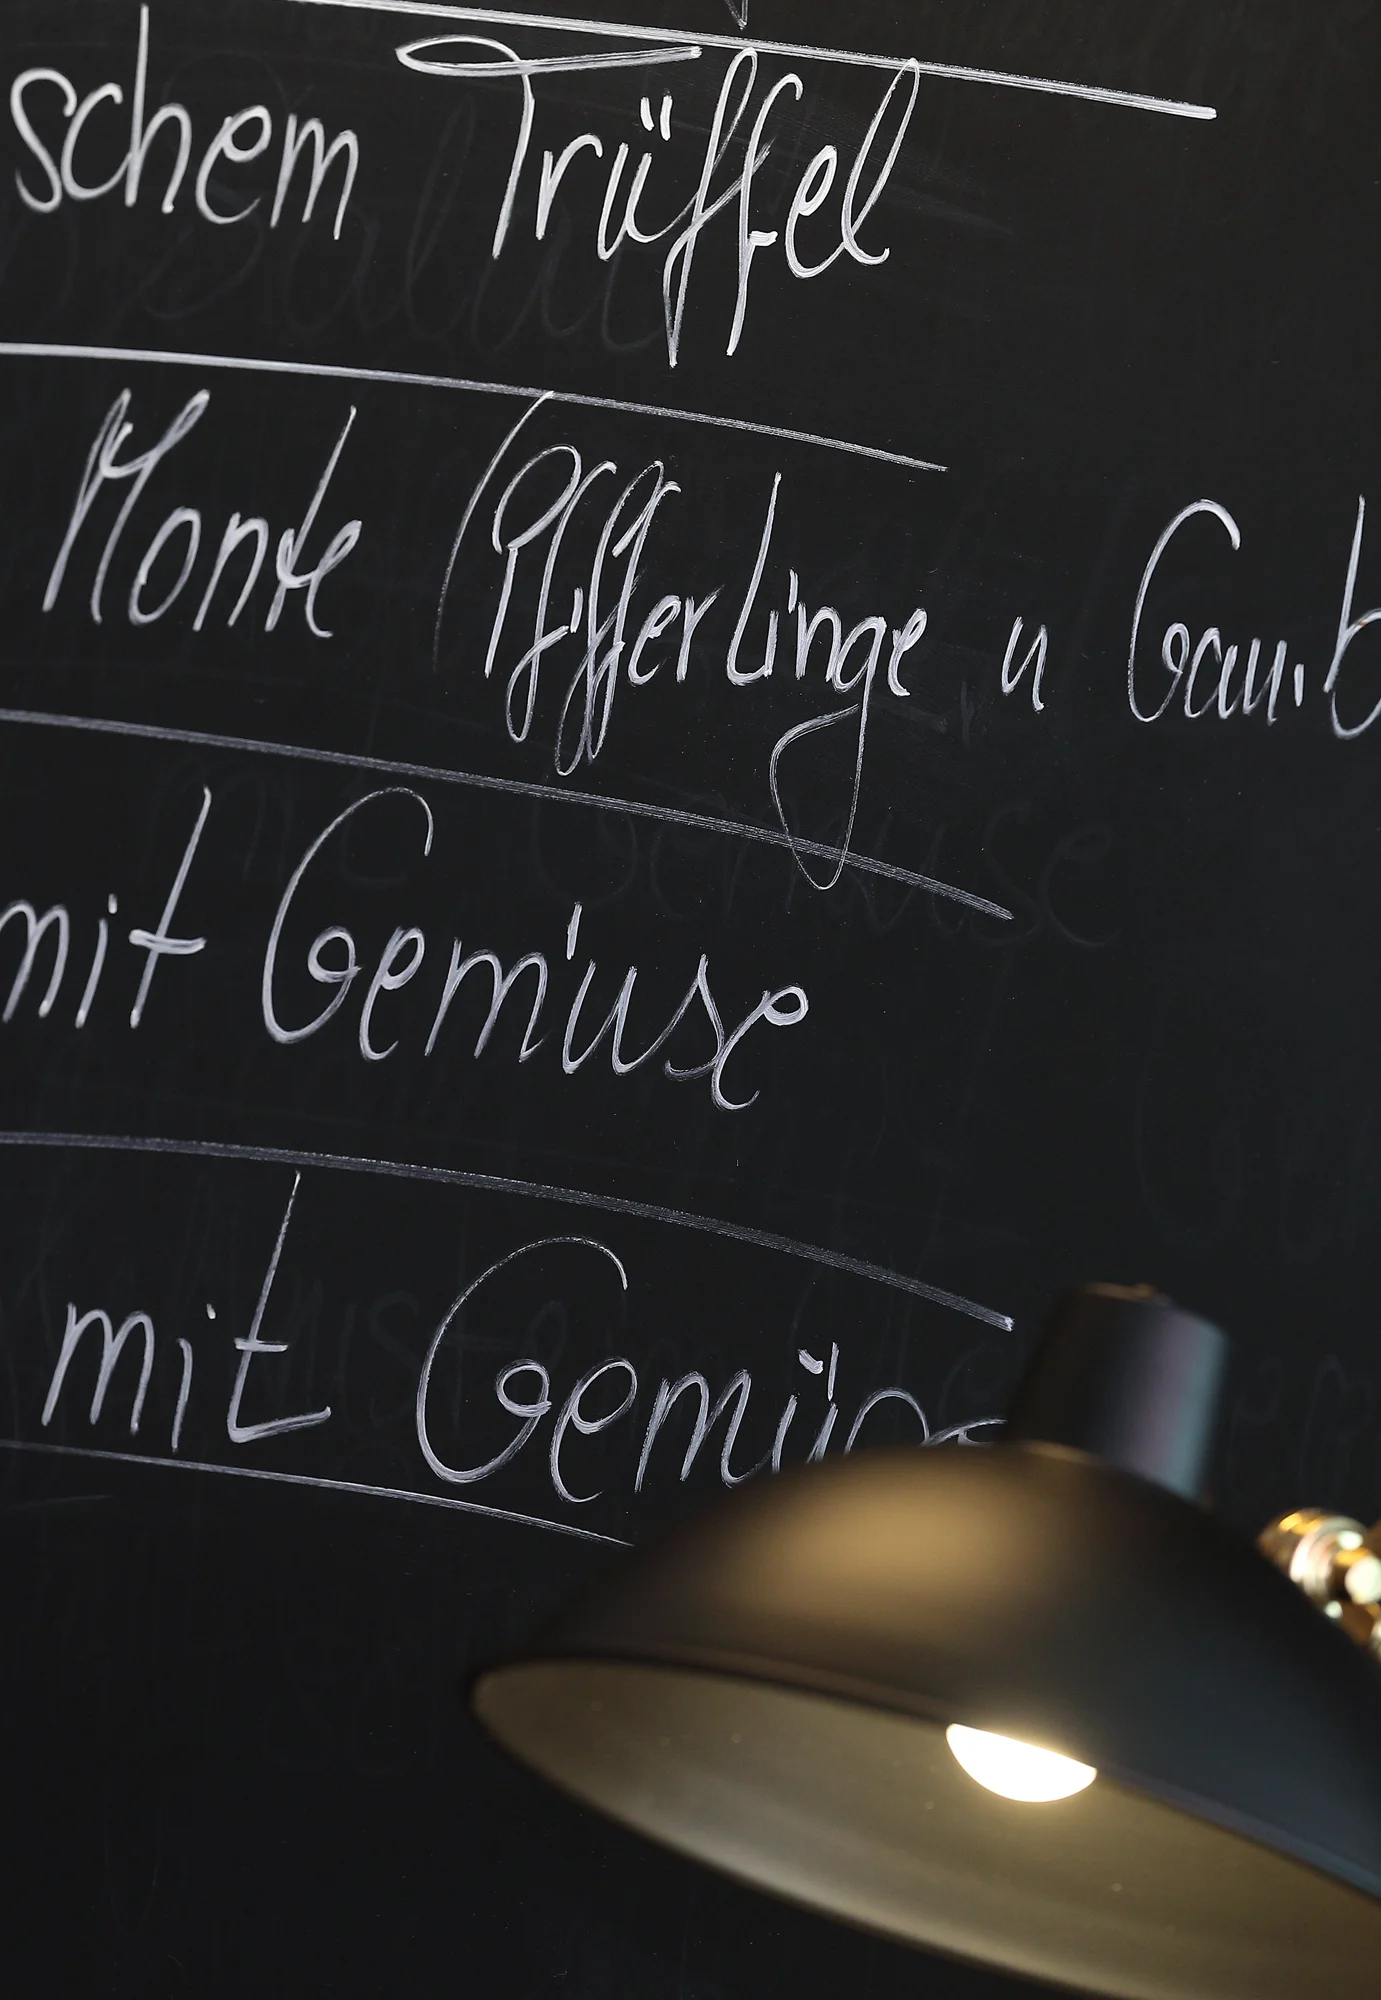 schem Trüffel
Monte (Pfifferlinge u Gamb
mit Gemüse
mit Gemüse